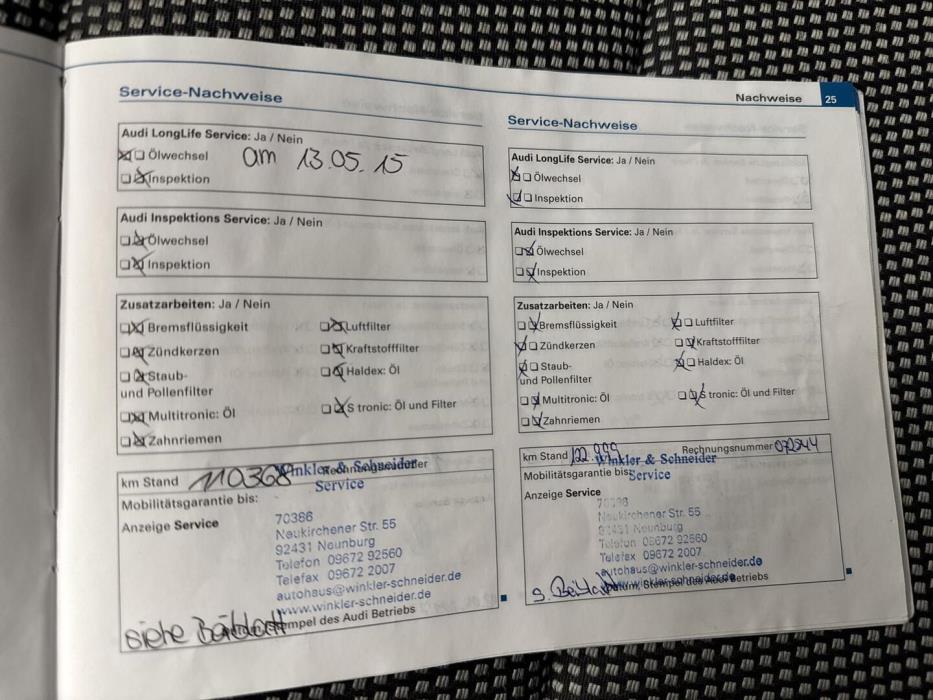 Nachweise 25
Service-Nachweise
Audi LongLife Service: Ja / Nein
Ölwechsel am 13.05.15
Inspektion
Audi Inspektions Service: Ja / Nein
Ölwechsel
Inspektion
Zusatzarbeiten: Ja / Nein
Bremsflüssigkeit Luftfilter
Zündkerzen Kraftstofffilter
Staub- Haldex: Öl
und Pollenfilter
Multitronic: Öl S tronic: Öl und Filter
Zahnriemen
km Stand 110368 Rechnungsnummer
Winkler & Schneider
Service
Mobilitätsgarantie bis:
Anzeige Service
70386
Neukirchener Str. 55
92431 Neunburg
Telefon 09672 92560
Telefax 09672 2007
autohaus@winkler-schneider.de
www.winkler-schneider.de
Stempel des Audi Betriebs
siehe
Service-Nachweise
Audi LongLife Service: Ja / Nein
Ölwechsel
Inspektion
Audi Inspektions Service: Ja / Nein
Ölwechsel
Inspektion
Zusatzarbeiten: Ja / Nein
Bremsflüssigkeit Luftfilter
Zündkerzen Kraftstofffilter
Staub- Haldex: Öl
und Pollenfilter
Multitronic: Öl S tronic: Öl und Filter
Zahnriemen
km Stand 122.999 Rechnungsnummer
Winkler & Schneider
Mobilitätsgarantie bis: Service
Anzeige Service
Neukirchener Str. 55
92431 Neunburg
Telefon 09672 92560
Telefax 09672 2007
autohaus@winkler-schneider.de
www.winkler-schneider.de
Datum, Stempel des Audi Betriebs